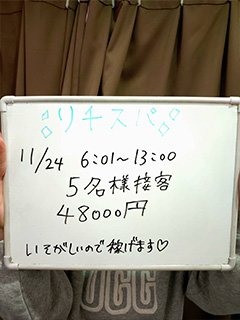 リチスパ
11/24 6:01～13:00
5名様接客
48000円
いそがしいので稼げます♡
UGG